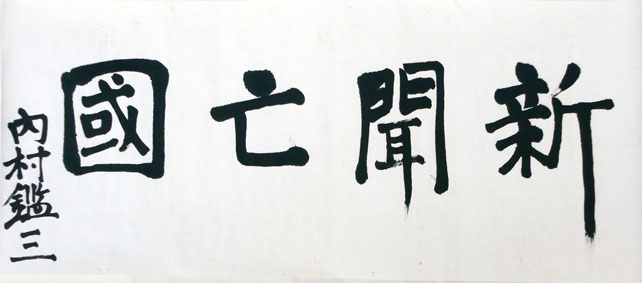 新聞亡國
内村鑑三